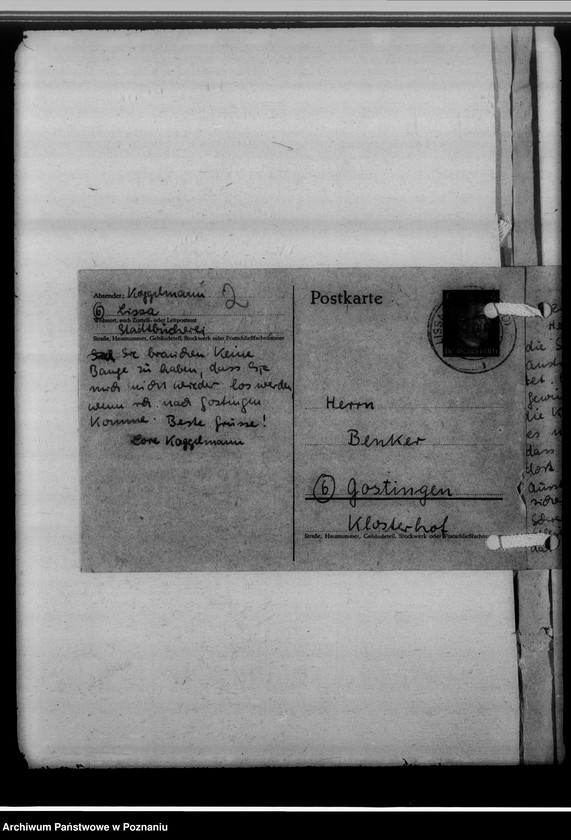 Absender: Koggelmann
2
(6) Lissa
Wohnort, auch Zustell- oder Leitpostamt
Stadtbücherei
Straße, Hausnummer, Gebäudeteil, Stockwerk oder Postschließfachnummer
Sie brauchen keine
Bange zu haben, dass Sie
mich nicht wieder los werden,
wenn ich nach Gostingen
komme. Beste Grüsse!
Lore Koggelmann
Postkarte
LISSA
Herrn
Benker
(6) Gostingen
Klosterhof
Straße, Hausnummer, Gebäudeteil, Stockwerk oder Postschließfachnummer
die
gewi
die K
es
dass
dort
Archiwum Państwowe w Poznaniu